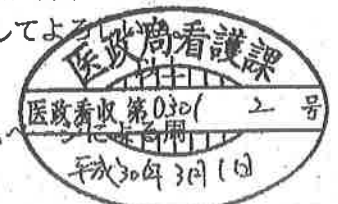 してよろし
医政局看護課
医政看収第0301 2号
平成30年3月1日